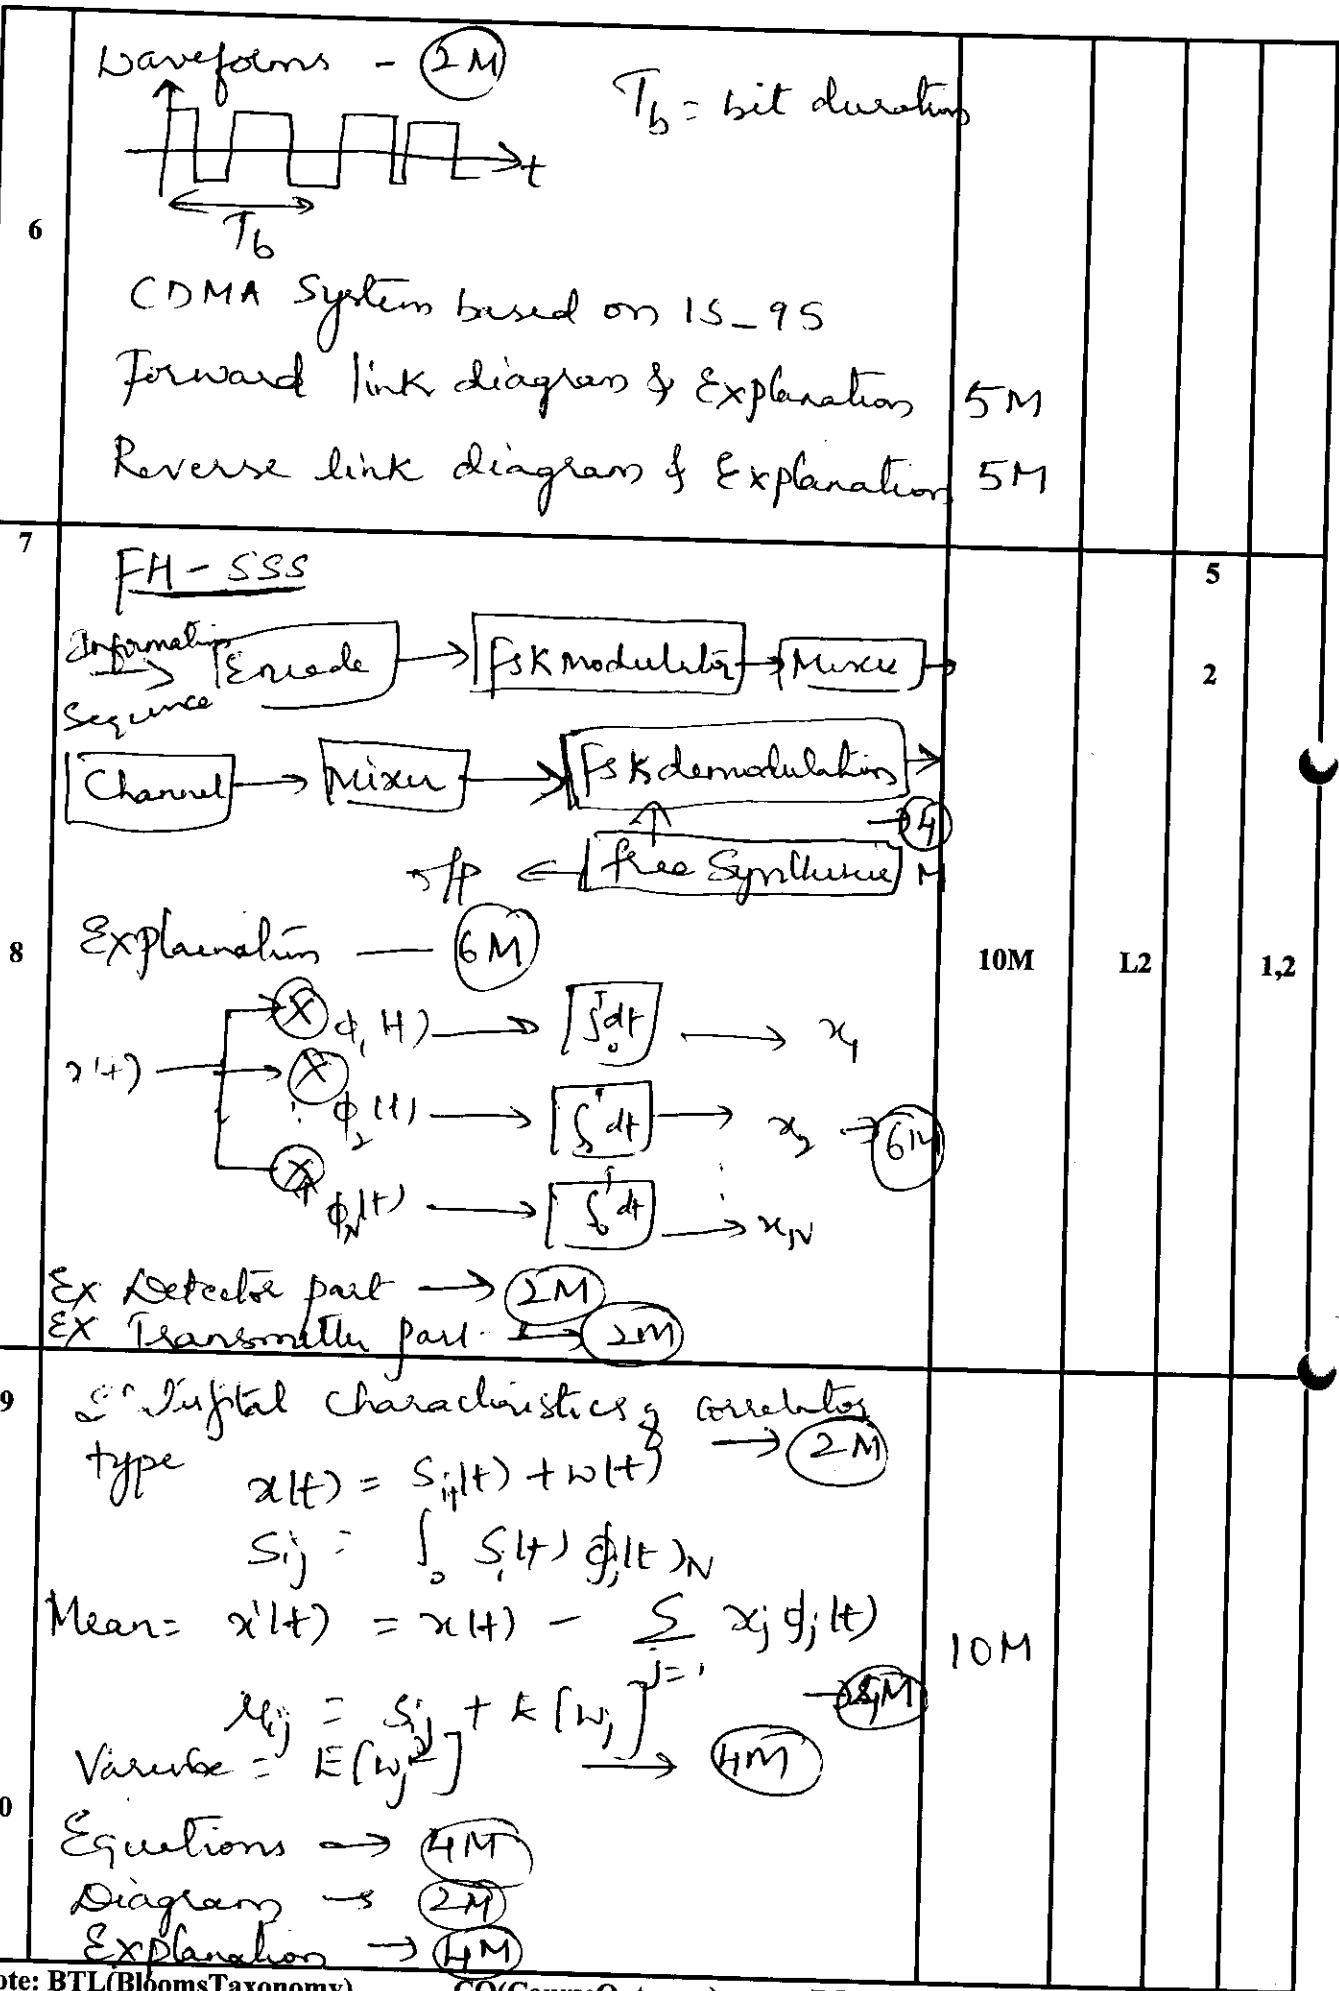 Waveforms - 2M
T_b = bit duration
t
T_b
6
CDMA System based on IS_95
Forward link diagram & Explanation 5M
Reverse link diagram & Explanation 5M
7
FH-SSS
5
Information Sequence
Encode
FSK Modulator
Mixer
2
Channel
Mixer
FSK demodulation
4 M
o/p
Synthesize
8
Explaination — 6M
10M L2 1,2
ϕ₁(t) ∫₀ᵀ dt x₁
x(t)
ϕ₂(t) ∫₀ᵀ dt x₂ 6M
ϕ_N(t) ∫₀ᵀ dt x_N
Ex Detector part → 2M
Ex Transmitter part → 2M
9
characteristics of correlator
type → 2M
x(t) = S_i(t) + w(t)
S_ij = ∫₀ S_i(t) ϕ_j(t)
Mean = x'(t) = x(t) - Σ_{j=1}^{N} x_j ϕ_j(t)
10M
μ_ij = S_ij + E[w_j]
= E[w_j²] → 4M
0
Equetions → 4M
Diagram → 2M
Explanation → 4M
ote: BTL(BloomsTaxonomy)